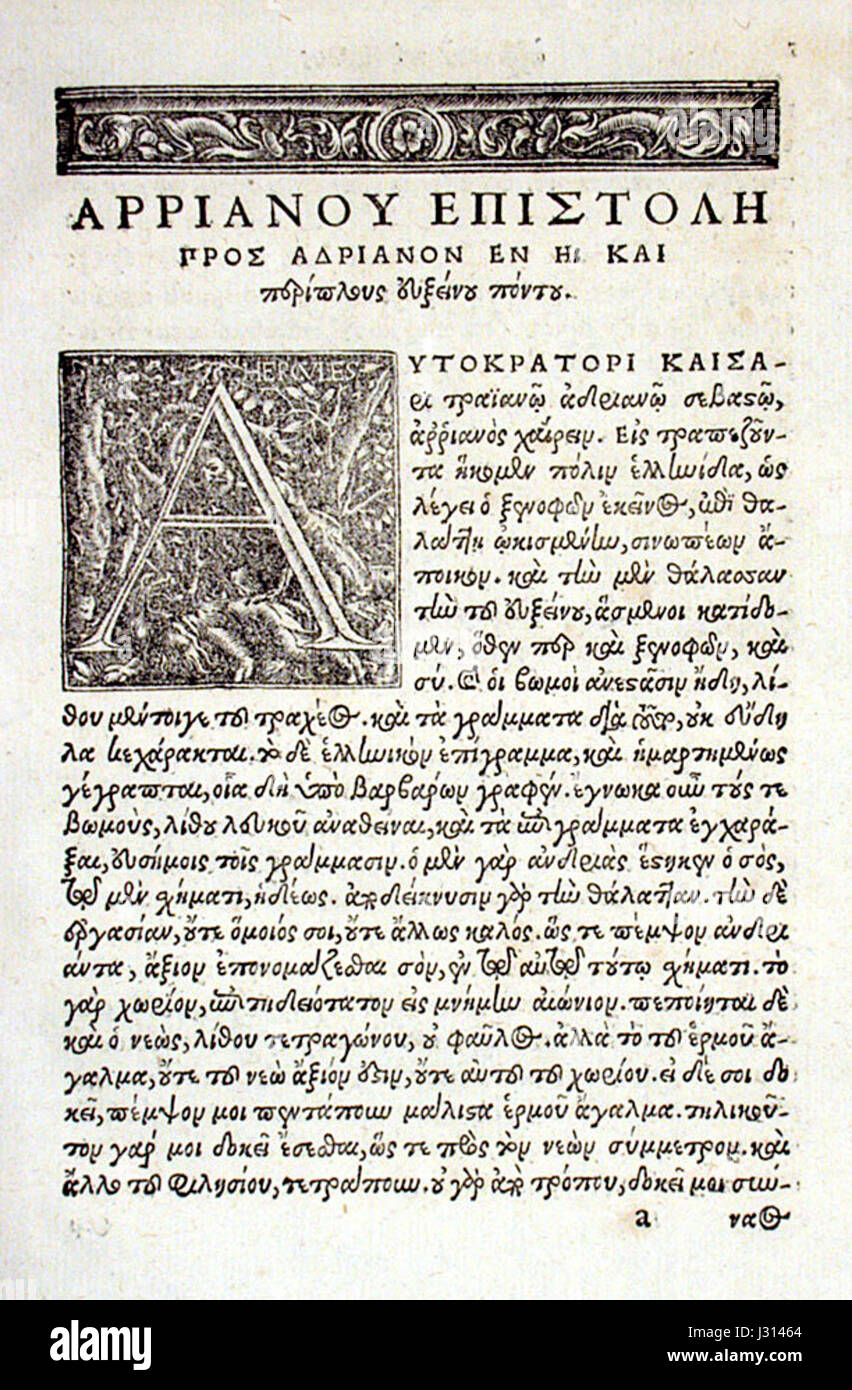 ΑΡΡΙΑΝΟΥ ΕΠΙΣΤΟΛΗ
ΠΡΟΣ ΑΔΡΙΑΝΟΝ ΕΝ Η ΚΑΙ
περίπλους ευξείνου πόντου.
HERCVLES
ΑΥΤΟΚΡΑΤΟΡΙ ΚΑΙΣΑ-
ρι τραϊανῷ ἀδριανῷ σεβαςῷ,
ἀῤῥιανὸς χαίρειν. Εἰς τραπεζοῦν-
τα ἥκομεν πόλιν ἑλληνίδα, ὡς
λέγει ὁ ξενοφῶν ἐκεῖνος, ἐπὶ θα-
λάττῃ ᾠκισμένην, σινωπέων ἄ-
ποικον. καὶ τὴν μὲν θάλασσαν
τὴν τοῦ ευξείνου, ἅσμενοι κατίδο-
μεν, ὅθεν περ καὶ ξενοφῶν, καὶ
σύ. Καὶ οἱ βωμοὶ ἀνεςᾶσιν ἤδη, λί-
θου μέντοιγε τοῦ τραχέος. καὶ τὰ γράμματα διὰ οὐκ εύδη
λα κεχάρακται. τὸ δὲ ἑλληνικὸν ἐπίγραμμα, καὶ ἡμαρτημένως
γέγραπται, οἷα δὴ ὑπὸ βαρβάρων γραφέν. ἔγνωκα οὖν τούς τε
βωμοὺς, λίθου λευκοῦ ἀναθεῖναι, καὶ τὰ ἐπιγράμματα ἐγχαρά-
ξαι, ευσήμοις τοῖς γράμμασιν. ὁ μὲν γὰρ ἀνδριὰς ἕςηκεν ὁ σὸς,
τῷ μὲν σχήματι, ἡδέως. ἀποδείκνυσιν γὰρ τὴν θάλατταν. τὴν δὲ
ἐργασίαν, οὔτε ὅμοιός σοι, οὔτε ἄλλως καλός. ὥς τε πέμψον ἀνδρι
άντα, ἄξιον ἐπονομάζεσθαι σὸν, ἐν τῷ αὐτῷ τούτῳ σχήματι. τὸ
γὰρ χωρίον, ἐπιτηδειότατον εἰς μνήμην αἰώνιον. πεποίηται δὲ
καὶ ὁ νεὼς, λίθου τετραγώνου, οὐ φαῦλος. ἀλλὰ τὸ τοῦ ἑρμοῦ ἄ-
γαλμα, οὔτε τοῦ νεὼ ἄξιόν ὅςιν, οὔτε αὐτοῦ τοῦ χωρίου. εἰ δέ σοι δο
κεῖ, πέμψον μοι πεντάπουν μάλιςα ἑρμοῦ ἄγαλμα. τηλικοῦ-
τον γάρ μοι δοκεῖ ἔσεσθαι, ὥς τε πρὸς τὸν νεὼν σύμμετρον. καὶ
ἄλλο τοῦ Φιλησίου, τετράπουν. οὐ γὰρ ἀπὸ τρόπου, δοκεῖ μοι σύν-
a ναος
alamy stock photo
J31464
www.alamy.com